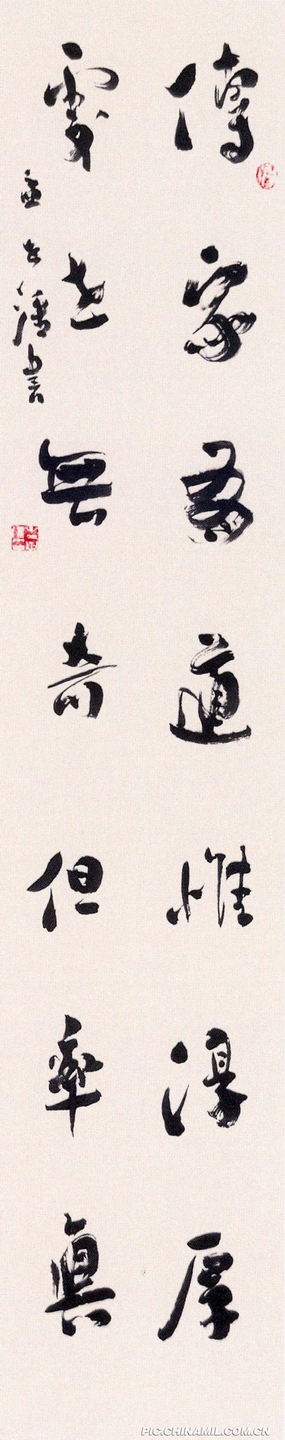 傳家有道惟淳厚
處世無奇但率真
書
PIC.CHINAMIL.COM.CN